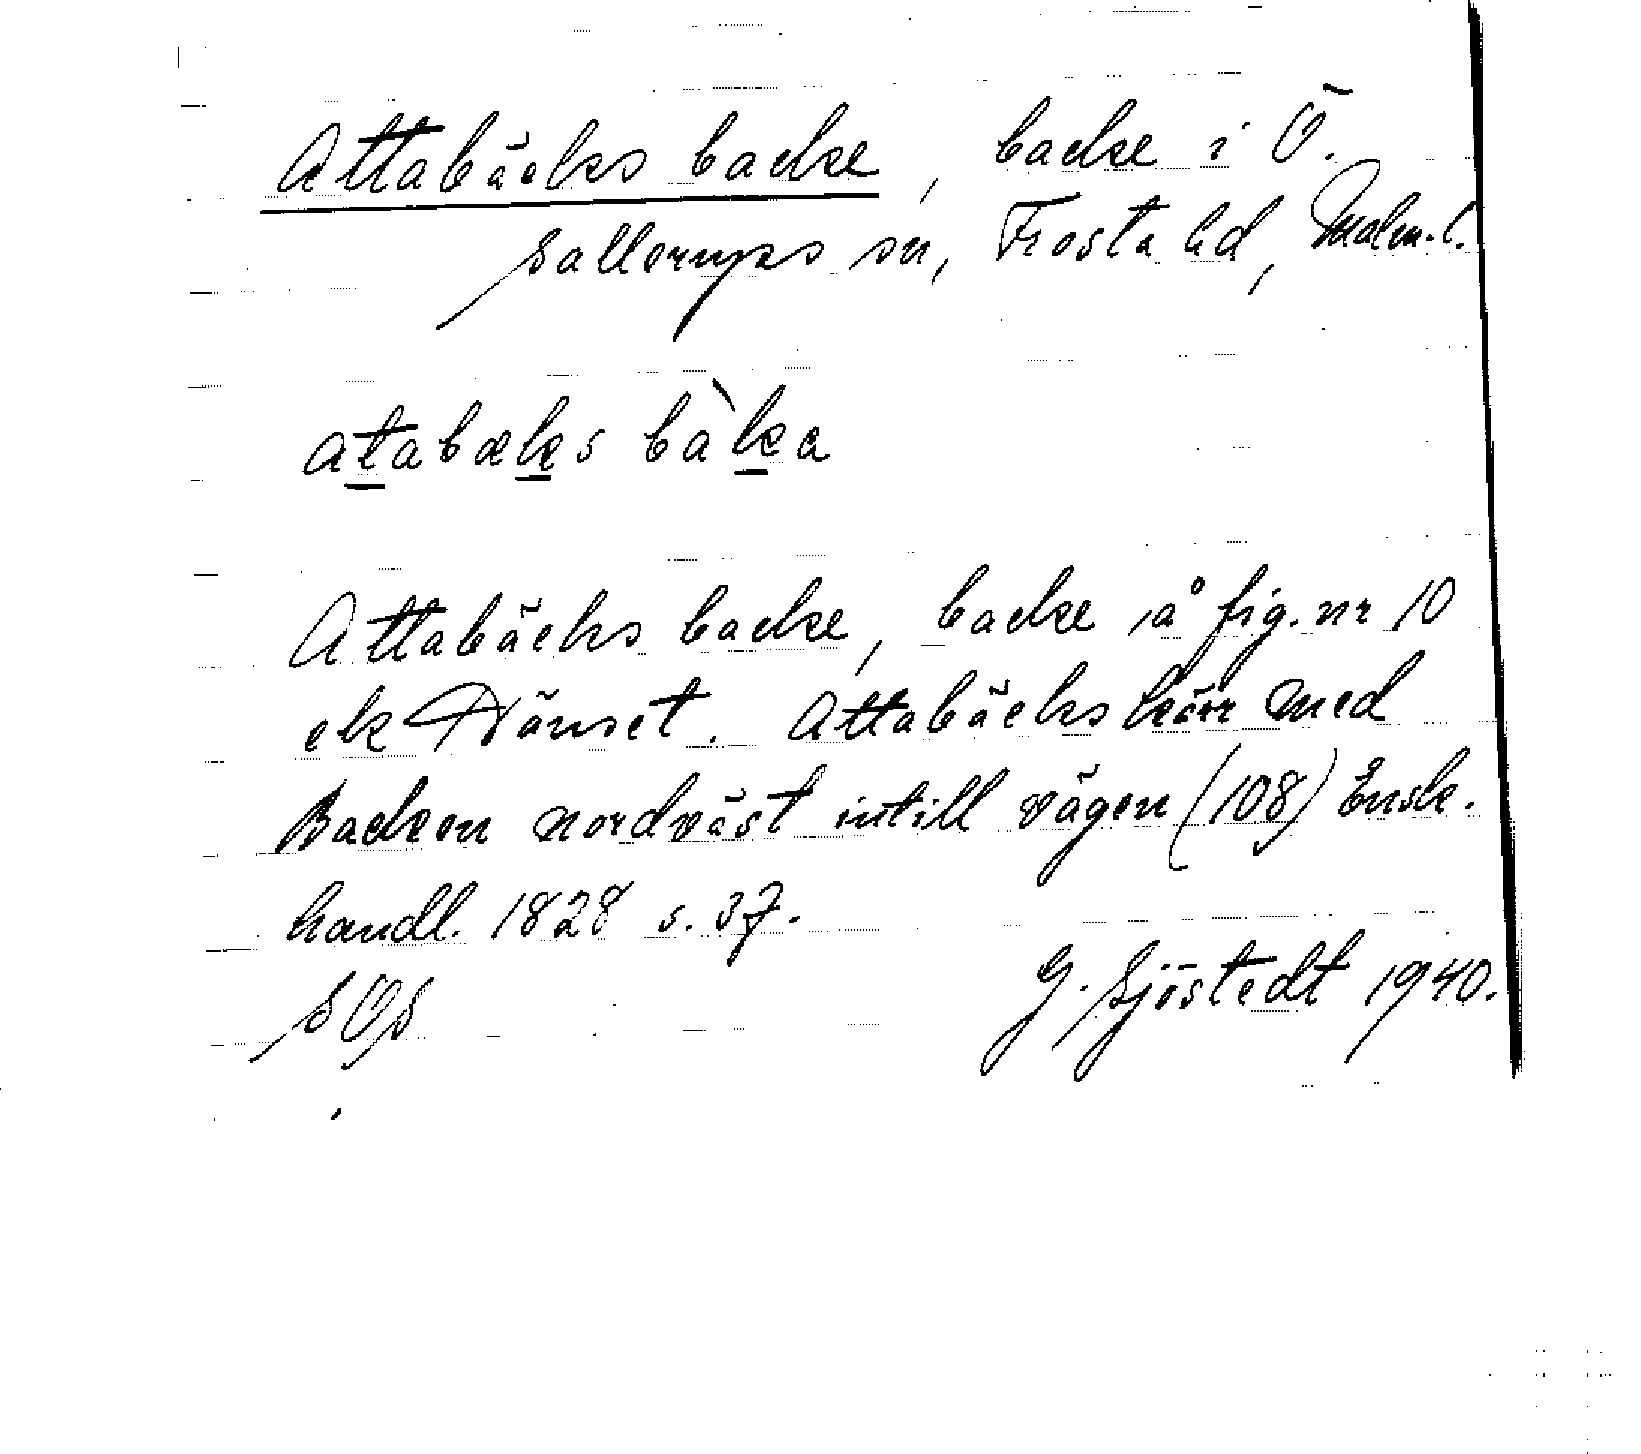 Attabäcks backe, backe i Ö.
Sallerups sn, Frosta hd, Malm.l.
atabæks bàka
Attabäcks backe, backe å fig. nr 10
ek Hänset. Attabäcks kärr med
Backen nordväst intill vägen (108) Ensk.
handl. 1828 s. 37.
SOS G. Sjöstedt 1940.